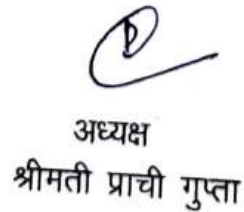 अध्यक्ष
श्रीमती प्राची गुप्ता